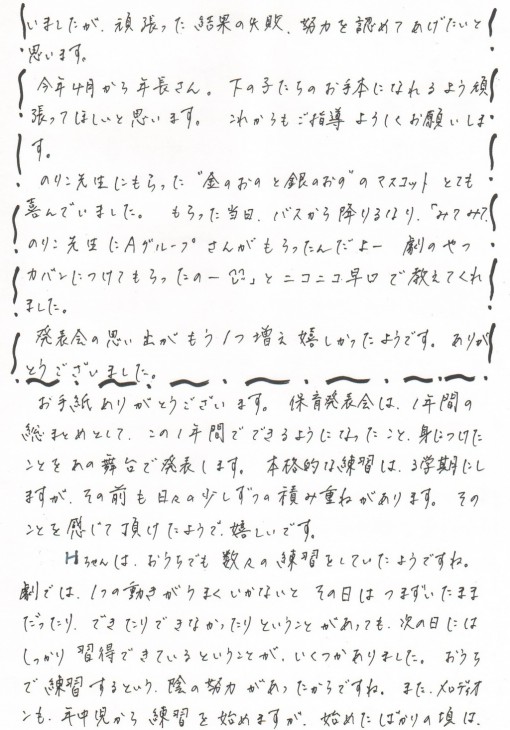 いましたが、頑張った結果の失敗、努力を認めてあげたいと
思います。
今年4月から年長さん。下の子たちのお手本になれるよう頑
張ってほしいと思います。これからもご指導よろしくお願いしま
す。
のりこ先生にもらった"金のおのと銀のおの"のマスコットとても
喜んでいました。もらった当日、バスから降りるなり、「みてみて、
のりこ先生にAグループさんがもらったんだよー 劇のやつ
カバンにつけてもらったのー」とニコニコ早口で教えてくれ
ました。
発表会の思い出がもう1つ増え嬉しかったようです。ありが
とうございました。
お手紙ありがとうございます。保育発表会は、1年間の
総まとめとして、この1年間でできるようになったこと、身につけた
ことをあの舞台で発表します。本格的な練習は、3学期にし
ますが、その前も日々の少しずつの積み重ねがあります。その
ことを感じて頂けたようで、嬉しいです。
Hちゃんは、おうちでも数々の練習をしていたようですね。
劇では、1つの動きがうまくいかないと その日はつまずいたまま
だったり、できたりできなかったりということがあっても、次の日には
しっかり習得できているということが、いくつかありました。おうち
で練習するという、陰の努力があったからですね。また、メロディオ
ンも、年中児から練習を始めますが、始めたばかりの頃は、